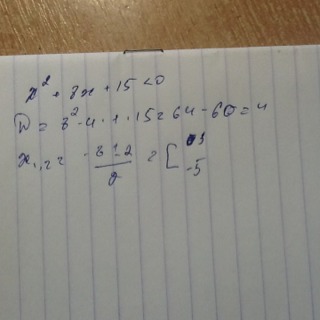 x² + 8x + 15 < 0
D = 8² - 4 · 1 · 15 = 64 - 60 = 4
x₁,₂ = (-8 ± 2) / 2 = [ -3
-5